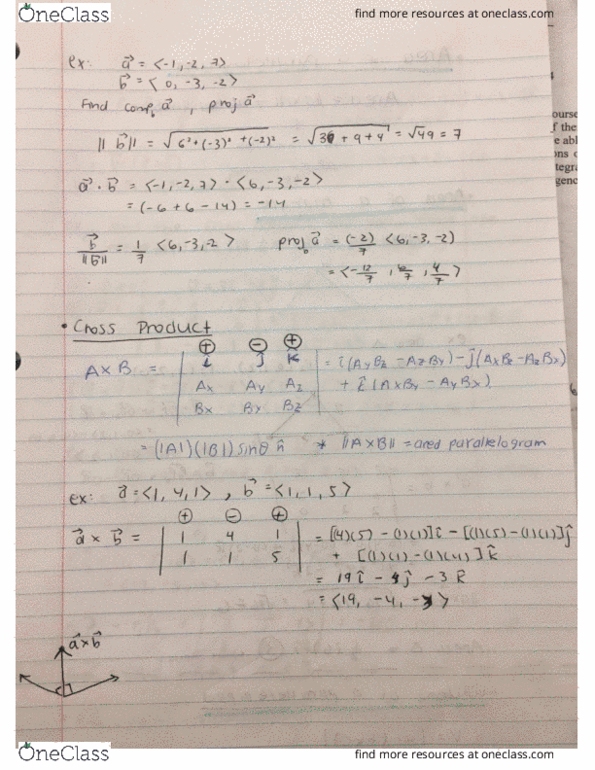 OneClass
find more resources at oneclass.com
ex: a⃗ = <-1, -2, 7>
b⃗ = < 0, -3, -2>
Find comp_b a⃗ , proj a⃗
|| b⃗ || = √6²+(-3)²+(-2)² = √36 + 9 + 4 = √49 = 7
a⃗ · b⃗ = <-1, -2, 7> · <6, -3, -2>
= (-6 + 6 - 14) = -14
b⃗/||b⃗|| = 1/7 <6, -3, -2 > proj_b a⃗ = (-2)/7 <6, -3, -2)
= <-12/7 , 6/7 , 4/7 >
• Cross Product
⊕ ⊖ ⊕
A × B = | i j k | = î (AyBz - AzBy) - ĵ (AxBz - AzBx)
Ax Ay Az + k̂ (AxBy - AyBx)
Bx By Bz
= (|A|) (|B|) sinθ n̂ * ||A×B|| = area parallelogram
ex: a⃗ = <1, 4, 1> , b⃗ = <1, 1, 5>
⊕ ⊖ ⊕
a⃗ × b⃗ = | 1 4 1 | = [(4)(5) - (1)(1)] î - [(1)(5) - (1)(1)] ĵ
1 1 5 + [(1)(1) - (1)(4)] k̂
= 19 î - 4 ĵ - 3 k̂
= <19, -4, -3>
a⃗×b⃗
ourse
f the
e abl
ons o
tegra
genc
OneClass
find more resources at oneclass.com